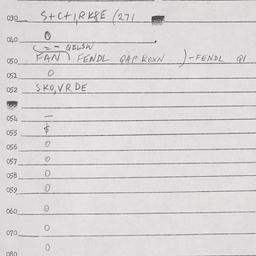 030 S+C+1, RK8E (271
040 0
(= - QELSW
050 FAN) FENDL QAP KOXN ) - FENDL QI
051 0
052 SKO, VR DE
054 —
055 $
056 0
057 0
058 0
059 0
060 0
070 0
080 0